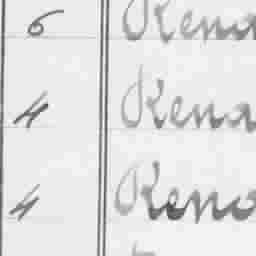 6 Rena
4 Rena
4 Reno